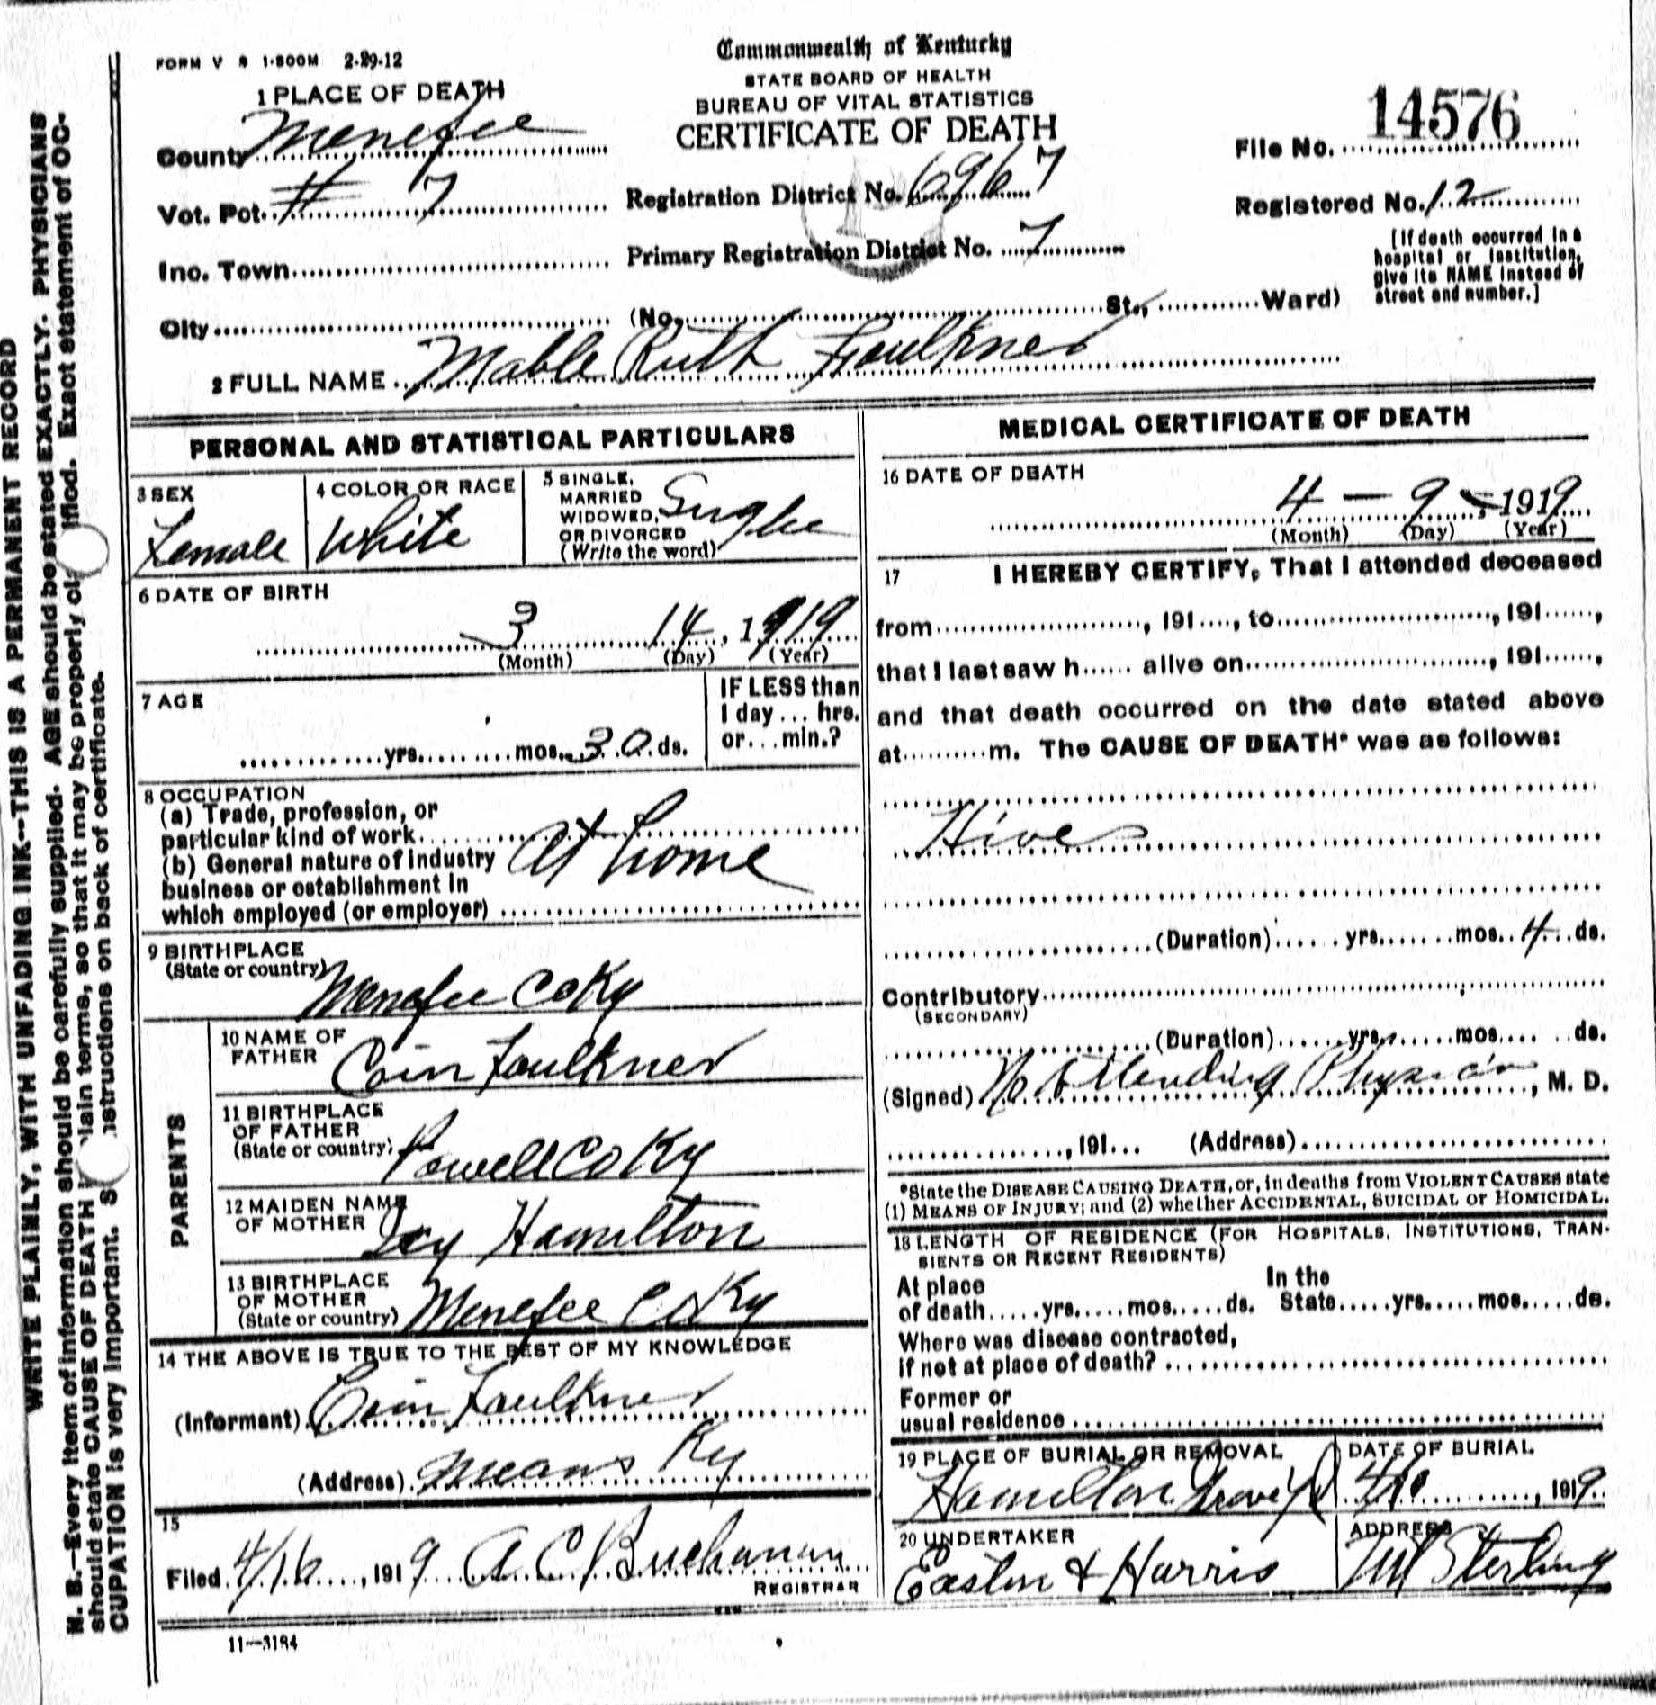 FORM V S 1-500M 2-29-12
Commonwealth of Kentucky
STATE BOARD OF HEALTH
BUREAU OF VITAL STATISTICS
CERTIFICATE OF DEATH
1 PLACE OF DEATH
County Menefee
Vot. Pct. # 7
Inc. Town
City
Registration District No. 6967
Primary Registration District No. 7
(No. St., Ward)
File No. 14576
Registered No. 12
[If death occurred in a
hospital or institution,
give its NAME instead of
street and number.]
2 FULL NAME Mable Ruth Faulkner
PERSONAL AND STATISTICAL PARTICULARS
3 SEX
Female
4 COLOR OR RACE
White
5 SINGLE,
MARRIED
WIDOWED,
OR DIVORCED
(Write the word)
Single
6 DATE OF BIRTH
3 14, 1919
(Month) (Day) (Year)
7 AGE
yrs. mos. 30 ds.
IF LESS than
1 day ... hrs.
or ... min.?
8 OCCUPATION
(a) Trade, profession, or
particular kind of work
(b) General nature of industry
business or establishment in
which employed (or employer)
At home
9 BIRTHPLACE
(State or country)
Menefee Co Ky
PARENTS
10 NAME OF
FATHER
Faulkner
11 BIRTHPLACE
OF FATHER
(State or country)
Powell Co Ky
12 MAIDEN NAME
OF MOTHER
Hamilton
13 BIRTHPLACE
OF MOTHER
(State or country)
Menefee Co Ky
14 THE ABOVE IS TRUE TO THE BEST OF MY KNOWLEDGE
(Informant) Faulkner
(Address) Means Ky
15
Filed 4/16, 1919 A. C. Buchanan
REGISTRAR
11-3184
MEDICAL CERTIFICATE OF DEATH
16 DATE OF DEATH
4 - 9 - 1919
(Month) (Day) (Year)
17 I HEREBY CERTIFY, That I attended deceased
from , 191 , to , 191 ,
that I last saw h alive on , 191 ,
and that death occurred on the date stated above
at m. The CAUSE OF DEATH* was as follows:
Hives
(Duration) yrs. mos. 4 ds.
Contributory
(SECONDARY)
(Duration) yrs. mos. ds.
(Signed) No Attending Physician, M. D.
, 191 (Address)
*State the DISEASE CAUSING DEATH, or, in deaths from VIOLENT CAUSES state
(1) MEANS OF INJURY; and (2) whether ACCIDENTAL, SUICIDAL or HOMICIDAL.
18 LENGTH OF RESIDENCE (FOR HOSPITALS, INSTITUTIONS, TRAN-
SIENTS OR RECENT RESIDENTS)
At place
of death yrs. mos. ds.
In the
State yrs. mos. ds.
Where was disease contracted,
if not at place of death?
Former or
usual residence
19 PLACE OF BURIAL OR REMOVAL
Hamilton Grave Yd
DATE OF BURIAL
4/10, 1919
20 UNDERTAKER
Eastin & Harris
ADDRESS
Mt Sterling
WRITE PLAINLY, WITH UNFADING INK--THIS IS A PERMANENT RECORD
N. B.--Every item of information should be carefully supplied. AGE should be stated EXACTLY. PHYSICIANS
should state CAUSE OF DEATH lain terms, so that it may be properly cl ified. Exact statement of OC-
CUPATION is very important. S structions on back of certificate.